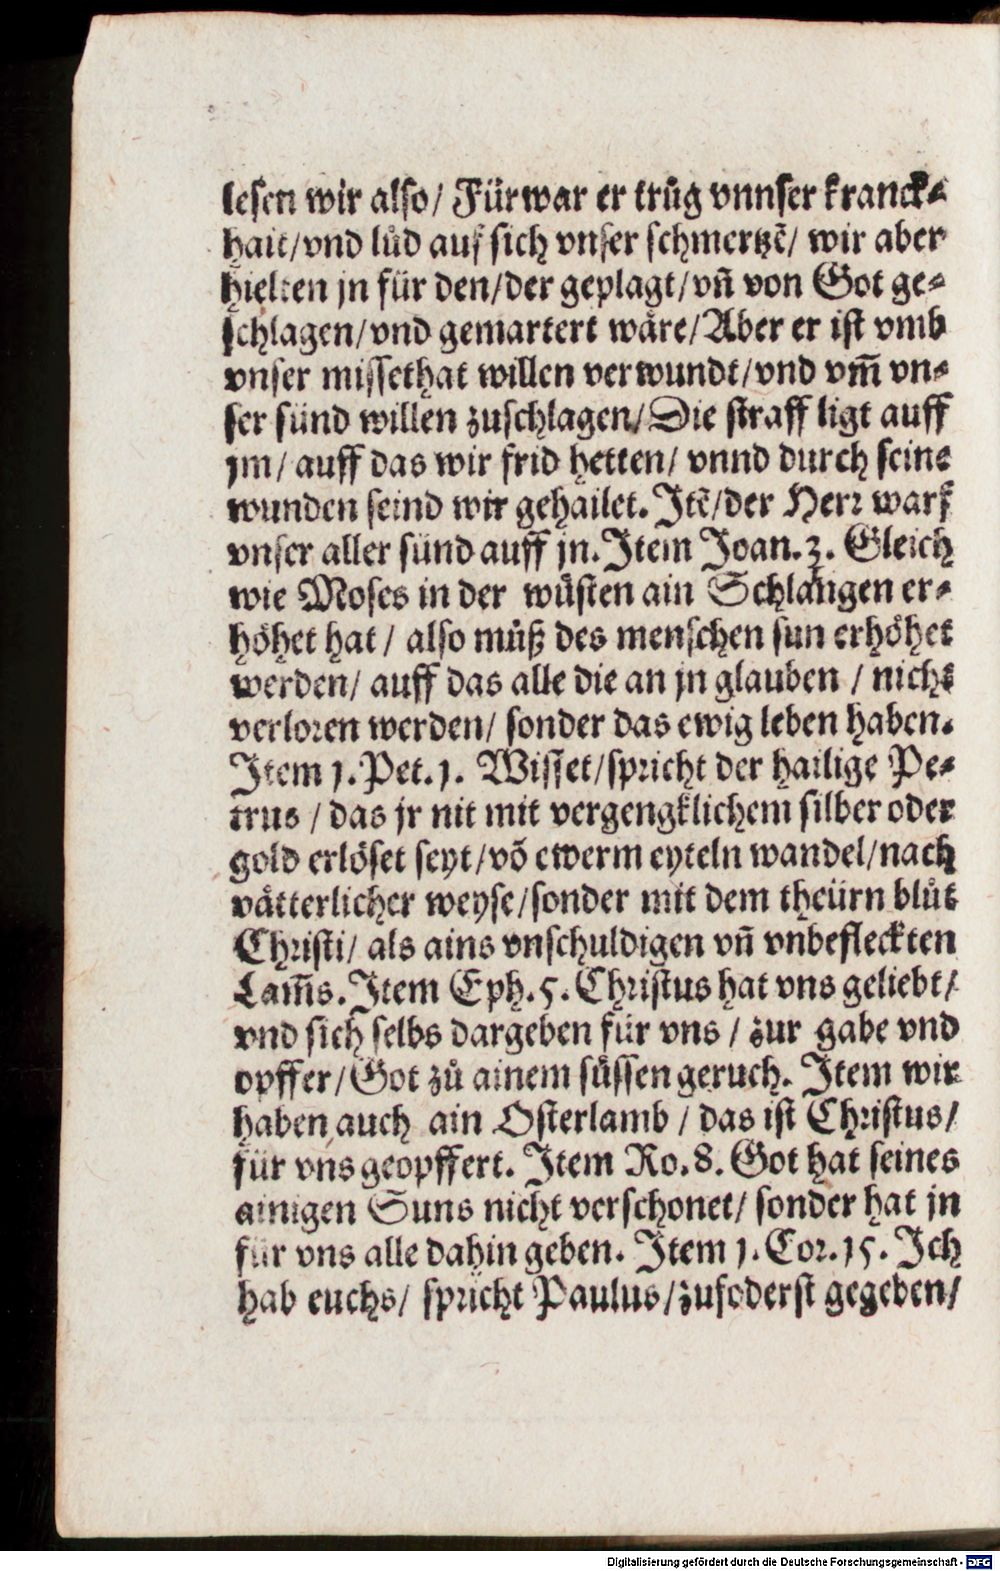 lesen wir also/ Fürwar er trůg vnnser kranck⸗
hait/vnd lůd auf sich vnser schmertzẽ/ wir aber
hielten jn für den/der geplagt/vñ von Got ge⸗
schlagen/vnd gemartert wåre/Aber er ist vmb
vnser missethat willen verwundt/vnd vm̃ vn⸗
ser sünd willen zuschlagen/Die straff ligt auff
jm/ auff das wir frid hetten/ vnnd durch seine
wunden seind wir gehailet. Jtẽ/der Herr warf
vnser aller sünd auff jn. Jtem Joan. 3. Gleich
wie Moses in der wůsten ain Schlangen er⸗
höhet hat/ also můß des menschen sun erhöhet
werden/ auff das alle die an jn glauben / nicht
verloren werden/ sonder das ewig leben haben.
Jtem 1. Pet. 1. Wisset/spricht der hailige Pe⸗
trus / das jr nit mit vergengklichem silber oder
gold erlöset seyt/võ ewerm eyteln wandel/nach
våtterlicher weyse/sonder mit dem theürn blůt
Christi/ als ains vnschuldigen vñ vnbefleckten
Lam̃s. Jtem Eph. 5. Christus hat vns geliebt/
vnd sich selbs dargeben für vns / zur gabe vnd
opffer/Got zů ainem sůssen geruch. Jtem wir
haben auch ain Osterlamb / das ist Christus/
für vns geopffert. Jtem Ro. 8. Got hat seines
ainigen Suns nicht verschonet/ sonder hat jn
für vns alle dahin geben. Jtem 1. Cor. 15. Jch
hab euchs/ spricht Paulus/zufoderst gegeben/
Digitalisierung gefördert durch die Deutsche Forschungsgemeinschaft - DFG